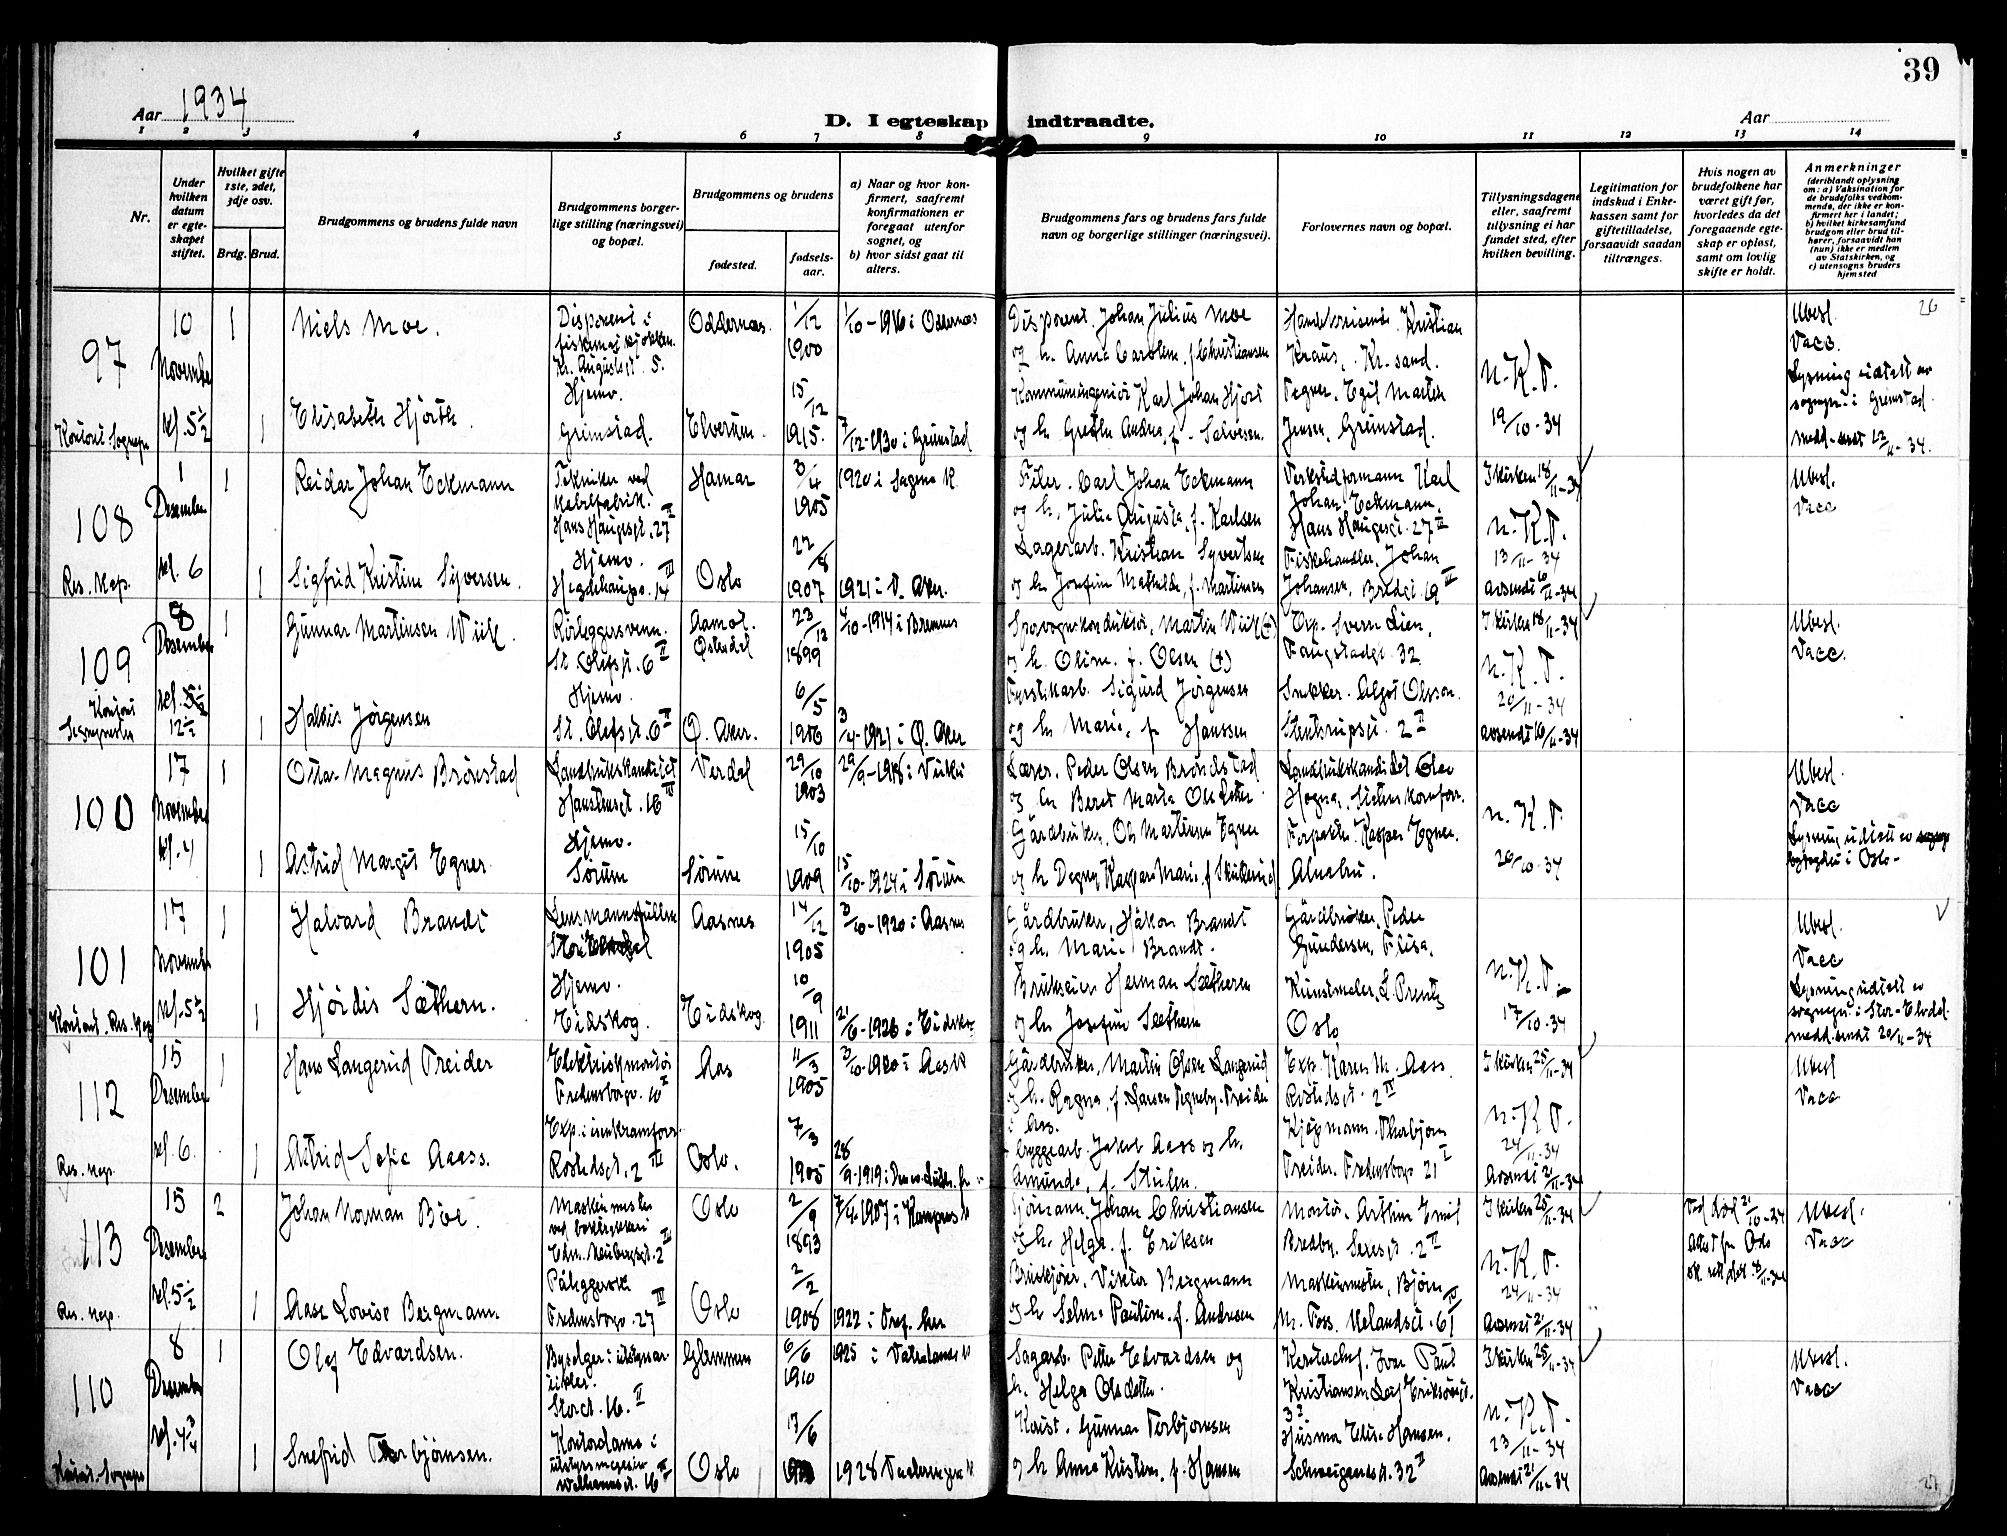 39
Aar 1934
D. Iegteskap indtraadte.
Aar
1 2 3 4 5 6 7 8 9 10 11 12 13 14
Nr.
Under hvilken datum er egteskapet stiftet.
Hvilket gifte 1ste, 2det, 3dje osv.
Brdg. Brud.
Brudgommens og brudens fulde navn
Brudgommens borgerlige stilling (næringsvei) og bopæl.
Brudgommens og brudens
fødested.
fødselsaar.
a) Naar og hvor konfirmert, saafremt konfirmationen er foregaat utenfor sognet, og
b) hvor sidst gaat til alters.
Brudgommens fars og brudens fars fulde navn og borgerlige stillinger (næringsvei).
Forlovernes navn og bopæl.
Tillysningsdagene eller, saafremt tillysning ei har fundet sted, efter hvilken bevilling.
Legitimation for indskud i Enkekassen samt for giftetilladelse, forsaavidt saadan tiltrænges.
Hvis nogen av brudefolkene har været gift før, hvorledes da det foregaaende egteskap er opløst, samt om lovlig skifte er holdt.
Anmerkninger
(deriblandt oplysning om: a) Vaksination for de brudefolks vedkommende, der ikke er konfirmert her i landet; b) hvilket kirkesamfund brudgom eller brud tilhører, forsaavidt han (hun) ikke er medlem av Statskirken, og c) utensogns bruders hjemsted
97
10 November kl. 5½
1
Niels Moe.
Kr. Augustsgt. 5.
Oddernes.
1/12 1900
1/10-1916 i Oddernes
Disponent Johan Julius Moe
og h. Anna Caroline f. Christiansen
Kristian Kraus, Kr. sand.
N.K.T.
19/10-34
Ubesl.
Vacc.
Lysning utstett av sognepr. i Grimstad.
medd. sendt 22/11-34.
26
1
Elisabeth Hjorth
Hjemv.
Grimstad.
Elverum.
15/12 1915.
7/12-1930 i Grimstad
Karl Johan Hjort
Tegner Egil Marten
Jensen, Grimstad.
108
1 Desember kl. 6
Res. Kap.
1
Reidar Johan Eckmann
Tekniker ved Kabelfabrik.
Hans Haugesgt. 27 II
Hamar
3/4 1905
1920 i Sagene K.
Filer. Carl Johan Eckmann
og h. Julie Augusta, f. Karlsen
Verkstedformann Karl
Johan Eckmann,
Hans Haugesgt. 27 II
I kirken 18/11-34
N.K.T.
13/11-34
Avsendt 16/11-34
Ubesl.
Vacc
1
Sigfrid Kristine Syversen.
Hjemv.
Hegdehaugsv. 14 III
Oslo
22/8 1907
1921 i V. Aker.
Lagerarb. Kristian Syvertsen
og h Josefine Mathilde, f. Martinsen
Fiskehandler, Johan
Johansen, Bredgt. 19 II
109
8 Desember kl. 5½ 12½
1
Gunnar Martinsen Wiik.
Rørleggersvenn.
St. Olafsgt. 6 II
Aamot. Østerdal
23/12 1899
4/10-1914 i Bremnes
Sporvognskonduktør, Martin Wiik (+)
og h. Oline. f. Olsen (+)
Exp. Sverre Lien,
Vaugstadgt. 32
I kirken 18/11-34
N.K.T.
20/11-34
Avsendt 16/11-34
Ubesl.
Vacc.
1
Haldis Jørgensen
Hjemv.
St. Olafsgt. 6 II
Ø. Aker.
6/5 1906
3/4-1921 i Ø. Aker
Fyrstikarb. Sigurd Jørgensen
og h Marie, f. Hanssen
Snekker. Algot Olsson.
Stenstrupsgt. 2 II
100
17 November kl. 4
1
Ottar Magnus Brønstad
Landbrukskandidat
Hausteensgt. 16
Verdal
29/10 1903
29/9-1918 i Vuku
Lærer. Peder Olsen Brønstad
og h Beret Marta Olsdatter
Landbrukskandidat Olav
Hogna, Statens kornforr.
N.K.T.
20/10-34
Ubesl.
Vacc
Lysning utstett av i Oslo-
1
Astrid Margit Egner
Hjemv.
Sørum
Sørum
15/10 1909
15/10-1924 i Sørum
Gårdbruker, Ole Martinsen Egner
Forpakter Kasper Egner.
Alnabru.
101
17 November kl. 5½
Kontort. Res. Kap
1
Halvard Brandt
Lensmannsfullm.
Aasnes
14/12 1905
3/10-1920 i Aasnes
Gårdbruker, Håkon Brandt
og h. Marie Brandt.
Gårdbruker, Peder
Gundersen, Flisa.
N.K.T.
17/10-34
Ubesl.
Vacc
Lysning utstett av
sognepr. i Stor-Elvdal.
medd. sendt 20/11-34
1
Hjørdis Sæthern.
Hjemv.
Eidskog.
Eidskog.
10/9 1911
21/6-1926 i Eidskog
Brukseier Herman Sætheren
og h. Josefine Sæthern
Kunstmaler, L. Prentz
Oslo
112
15 Desember kl. 6
Res. Kap.
1
Hans Langerud Treider
Elektriskmontør
Fredensborgv. 10 I
Aas
11/3 1905
3/10-1920 i Aas K
Gårdbruker, Martin Olsen Langerud
og h. Ragna, f. Larsen Tegneby-Treider
Aas.
Exp. Karen M. Aass
Rostedsgt. 2 IV
I kirken 25/11-34
N.K.T.
24/11-34
Avsendt 21/11-34
Ubesl
Vacc
1
Astrid Sofie Aass.
Exp. i isenkramforr.
Rostedsgt. 2 III
Oslo.
7/3 1905
28/9-1919
Byggearb. Jakob Aass og h.
Amunda, f. Stulen.
Kjøpmann. Thorbjørn
Treider. Fredensborgv 21 I
113
15 Desember kl. 5½
Res. Kap.
2
Johan Norman Bøe.
Maskinmester
Edv. Neubergsgt. 2 II
Oslo
2/9 1893
7/4-1907 i Kampens K
Johan Christiansen
og h. Helga f. Eriksen
Montør. Arthur Emil
Bredby. Seresgt. 2 II
I kirken 25/11-34
N.K.T.
24/11-34
Avsendt 21/11-34
Ved død 21/10-34
Attest fra Oslo
sk. rett dat. 8/11-34
Ubesl.
Vacc
1
Aase Lovise Bergmann
Påleggerske
Fredensborgv. 27 IV
Oslo
2/2 1908
1922 i
Bruskjører, Viktor Bergmann
og h Selma Pauline. f. Andresen
Maskinmester, Bjørn
M. Foss. Uelandsgt. 61 IV
110
8 Desember kl. 4¾
1
Olaf Edvardsen.
Storgt. 16. II
Glemmen
6/6 1910
1925 i Vaterlands K
Sagarb. Petter Edvardsen og
h. Helga Olsdatter.
Kontorchef. Ivar Paul
Kristiansen Leif Eriksøns gt.
32
I kirken 25/11-34
N.K.T.
23/11-34
Avsendt 21/11-34
Ubesl.
Vacc
1
Snefrid Thorbjørnsen.
Kontordame i
Wilhelmsgt. 16 II
Oslo
17/6
1928
Gunnar Torbjørnsen
og h Anna Kristine, f. Hansen
Husmor Elise Hansen.
Schweigaardsgt. 32 I
27